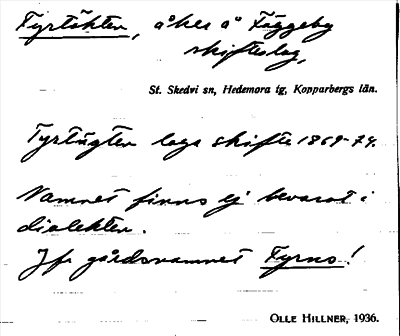 Fyrtäkten, åker å Fäggeby
skifteslag,
St. Skedvi sn, Hedemora tg, Kopparbergs län.
Fyrtägten laga skifte 1869-74.
Namnet finns ej bevarat i
dialekten.
Jfr gårdsnamnet Fyrns!
OLLE HILLNER, 1936.